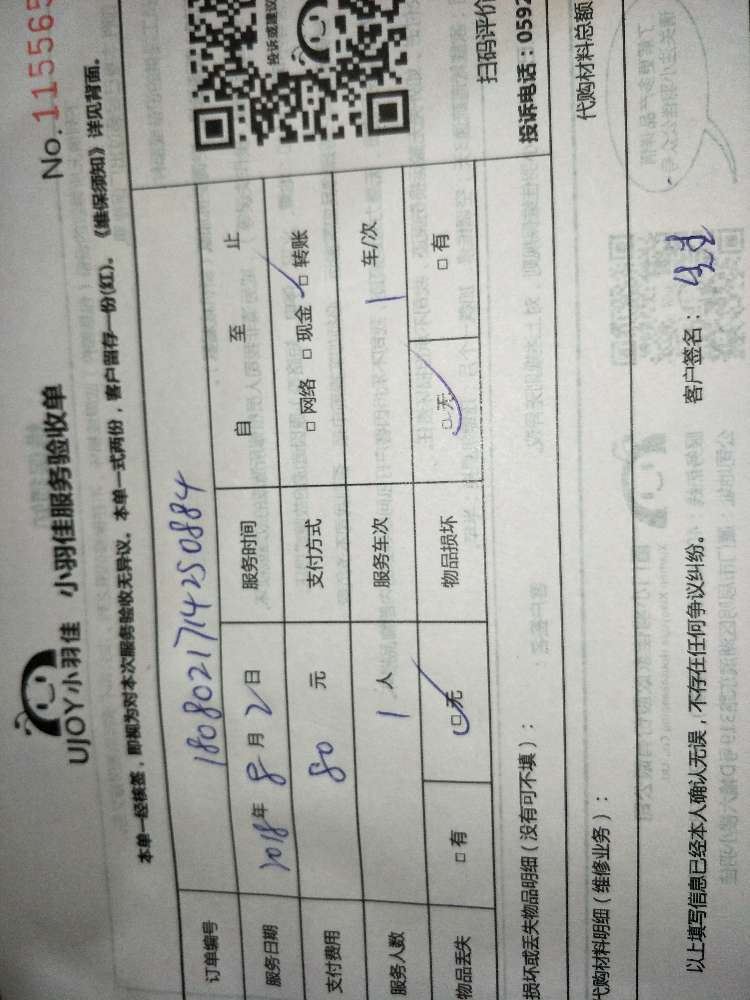 UJOY小羽佳 小羽佳服务验收单
No.115565
本单一经核签，即视为对本次服务验收无异议。本单一式两份，客户留存一份(红)。《维保须知》详见背面。
订单编号 180802171425 0884
服务日期 2018年 8月 2日 服务时间 自 至 止
支付费用 80 元 支付方式 □ 网络 □ 现金 □ 转账
服务人数 1 人 服务车次 1 车/次
物品丢失 □ 有 □ 无 物品损坏 □ 无 □ 有
投诉或建议
扫码评价
投诉电话：0592
损坏或丢失物品明细（没有可不填）：
代购材料明细（维修业务）：
代购材料总额
以上填写信息已经本人确认无误，不存在任何争议纠纷。
客户签名：